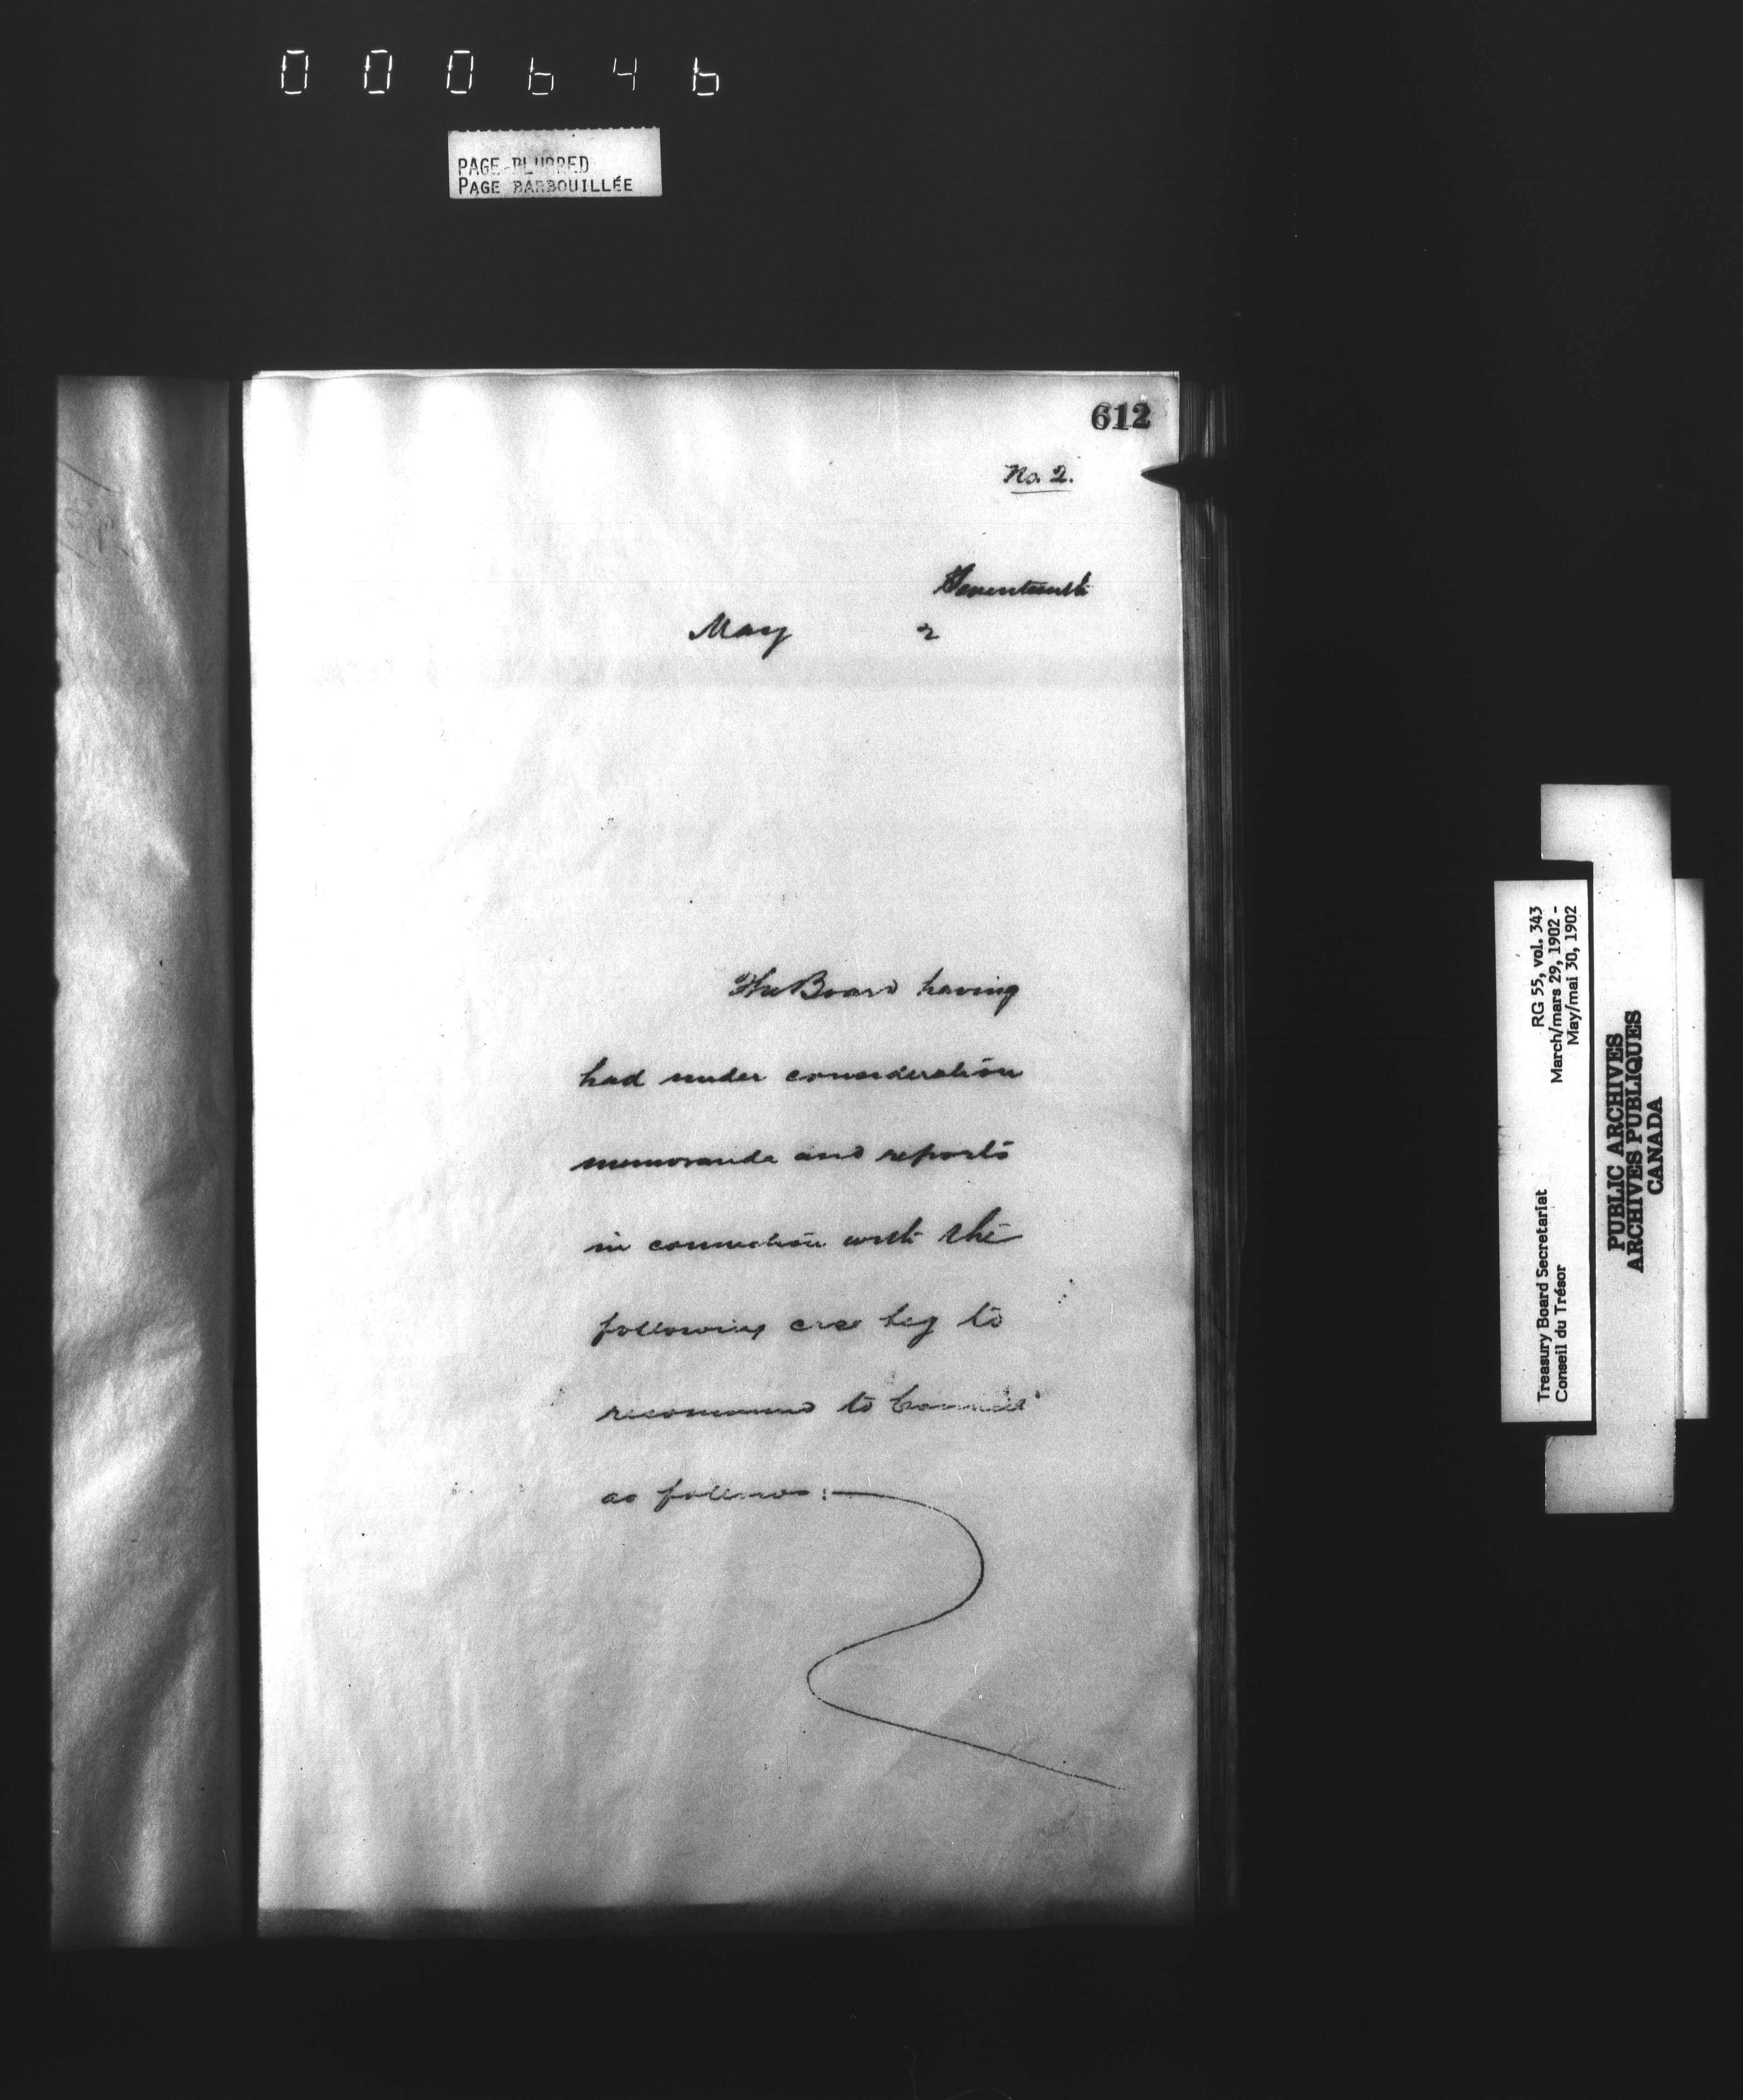 000646
PAGE BLURRED
PAGE BARBOUILLÉE
612
No. 2.
Seventeenth
May 2
The Board having
had under consideration
memoranda and reports
in connection with the
following case beg to
recommend to Council
as follows:
RG 55, vol. 343
March/mars 29, 1902 -
May/mai 30, 1902
Treasury Board Secretariat
Conseil du Trésor
PUBLIC ARCHIVES
ARCHIVES PUBLIQUES
CANADA